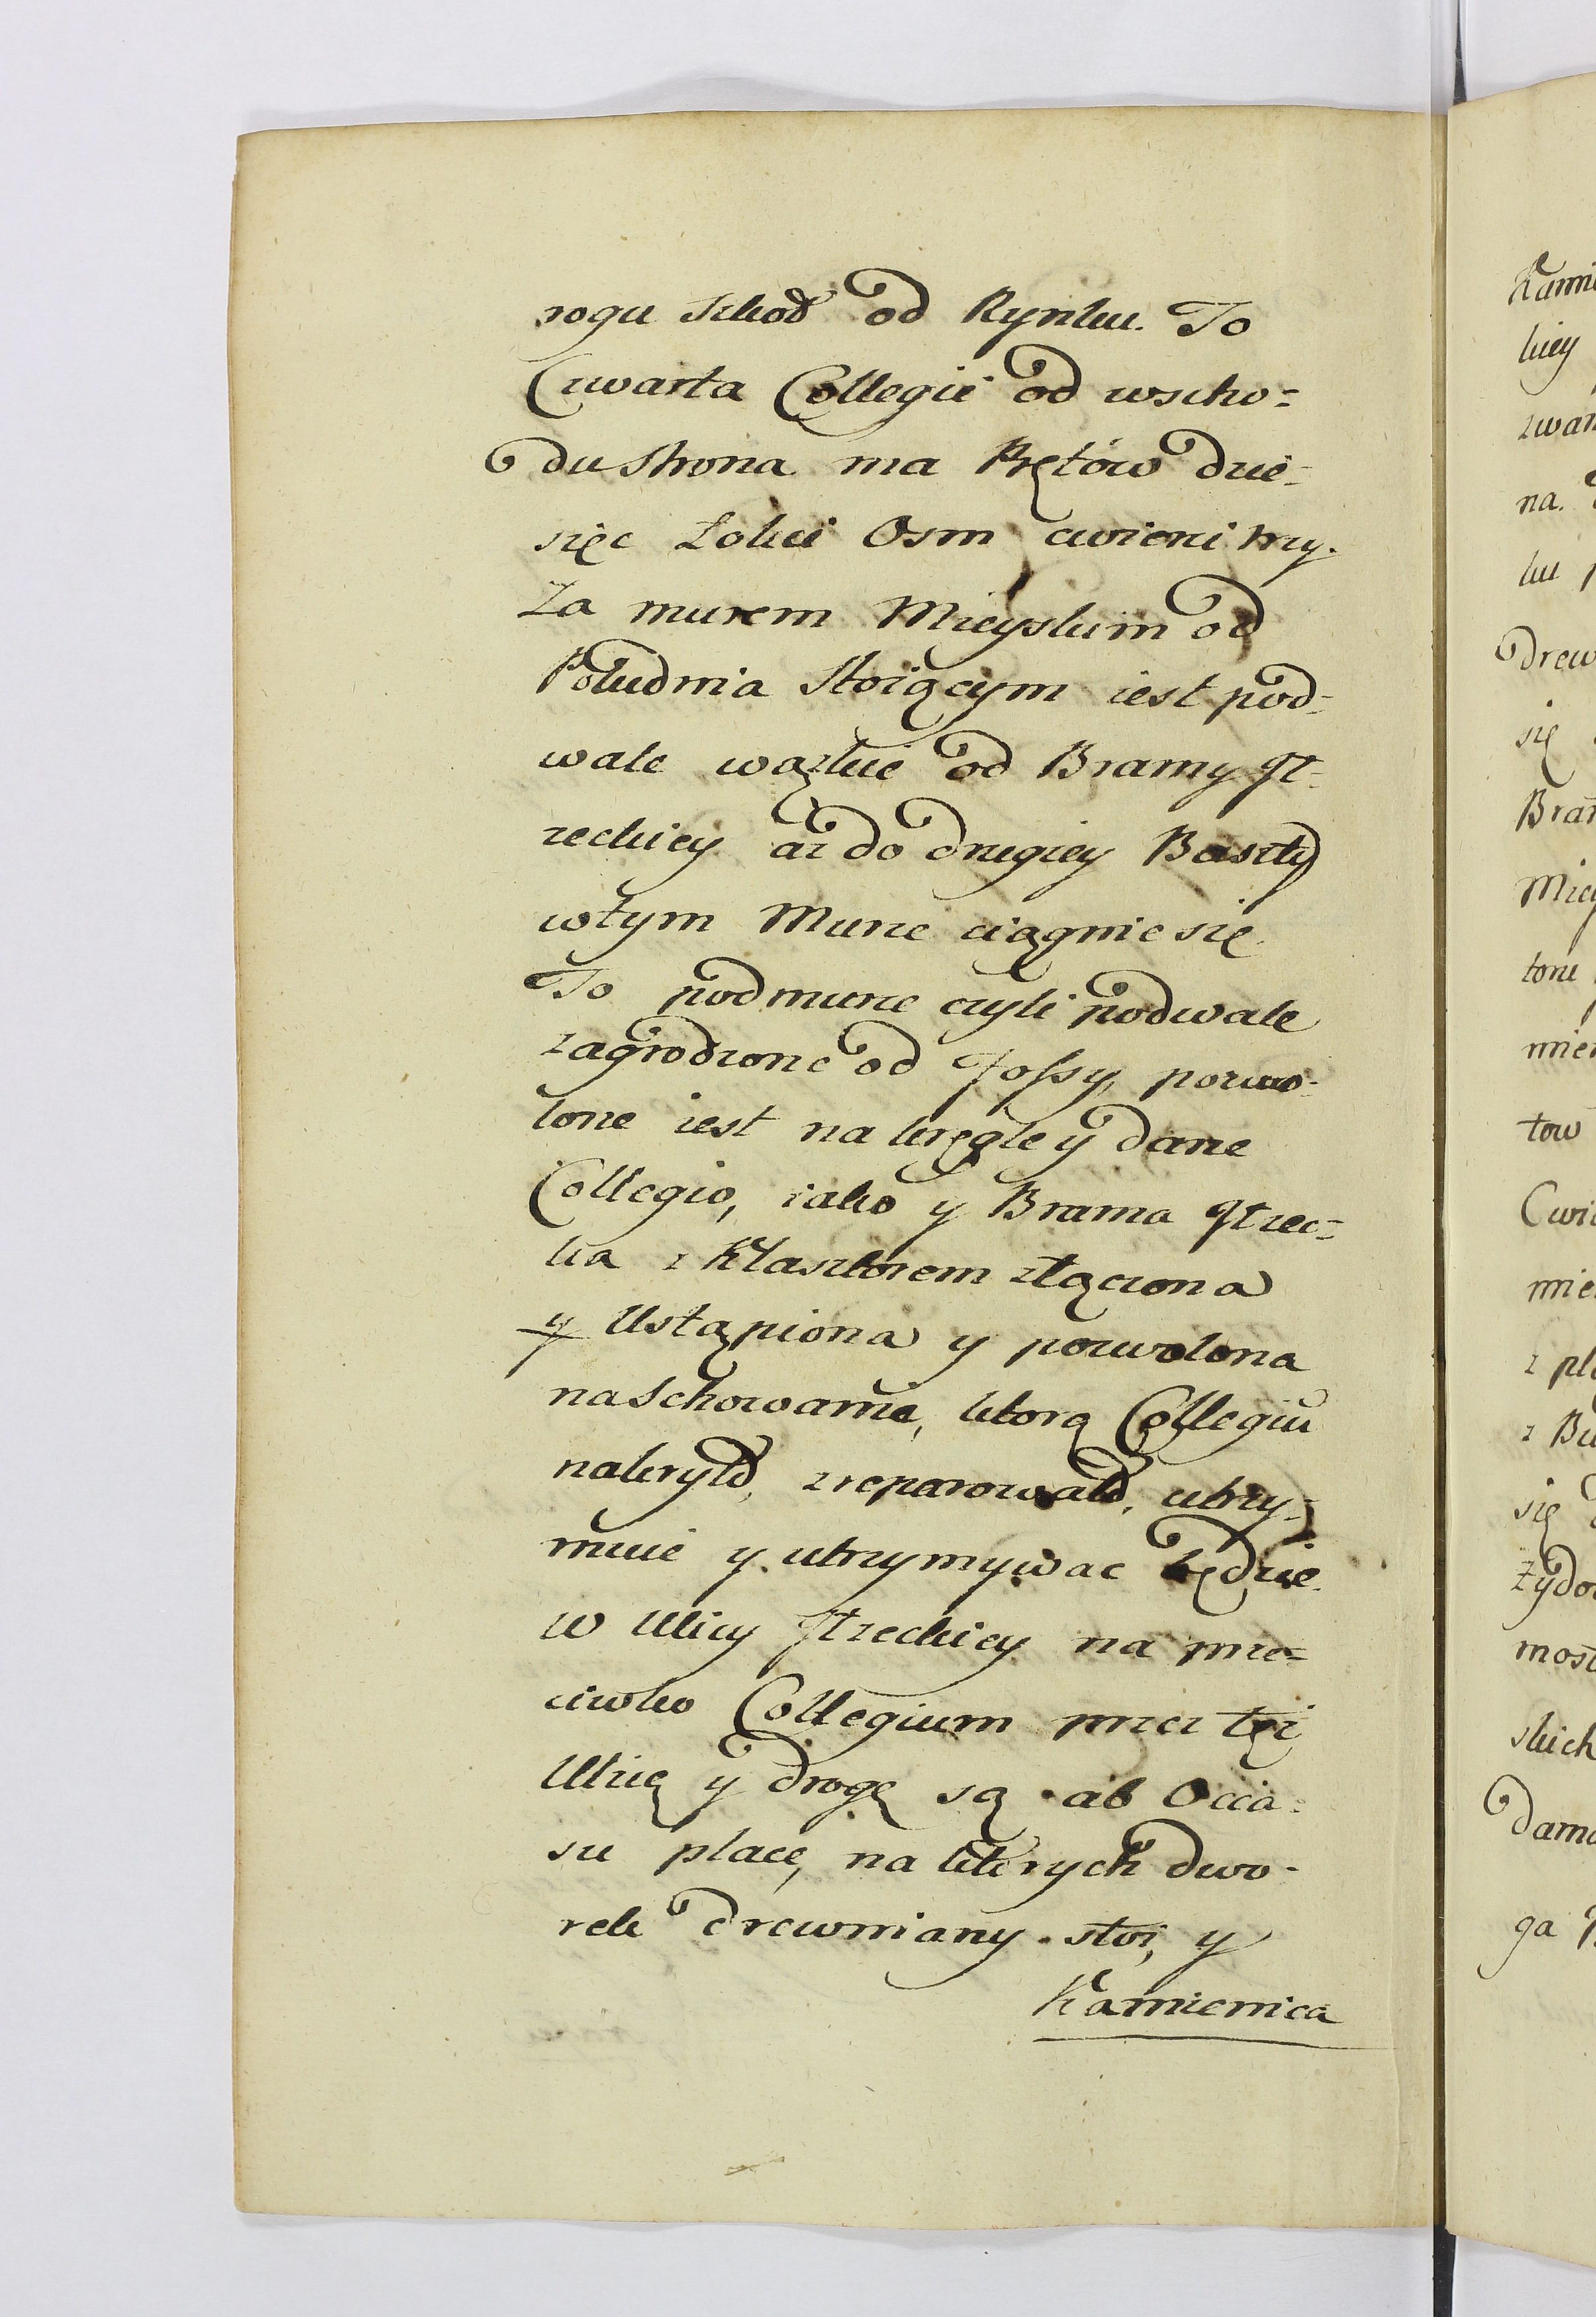 rogu Szkoł od Rynku. To
Czwarta Collegii od wscho=
du strona ma Prętów dzie-
sięc Łokci Osm cwierci trzy.
Za murem Mieyskim od
Południa stoiącym iest pod-
wale wązkie od Bramy Gr-
zeckiey az do drugiey Baszty
wtym Murze ciągnie się.
To podmurze czyli podwale
zagrodzone od Fossy, pozwo-
lone iest na kręgle y dane
Collegio, iako y Brama Grzec=
ka z Klasztorem złączona
y Ustąpiona y pozwolona
na Schowanie, ktorą Collegiu
nakrylo, zreparowalo, utrzy-
muie y utrzymywac będzie.
w Ulicy Grzeckiey na prze=
ciwko Collegium przez tęż
Ulicę y drogę są ab Occa-
su place, na ktorych dwo-
rek drewniany stoi, y
Kamienica
Kamie
kiey
zwan
na.
ku p
drew
się
Bram
Miey
tonu
mier
tow
Cwie
mie
z pla
z Bu
się
Zydo
most
skich
dama
ga